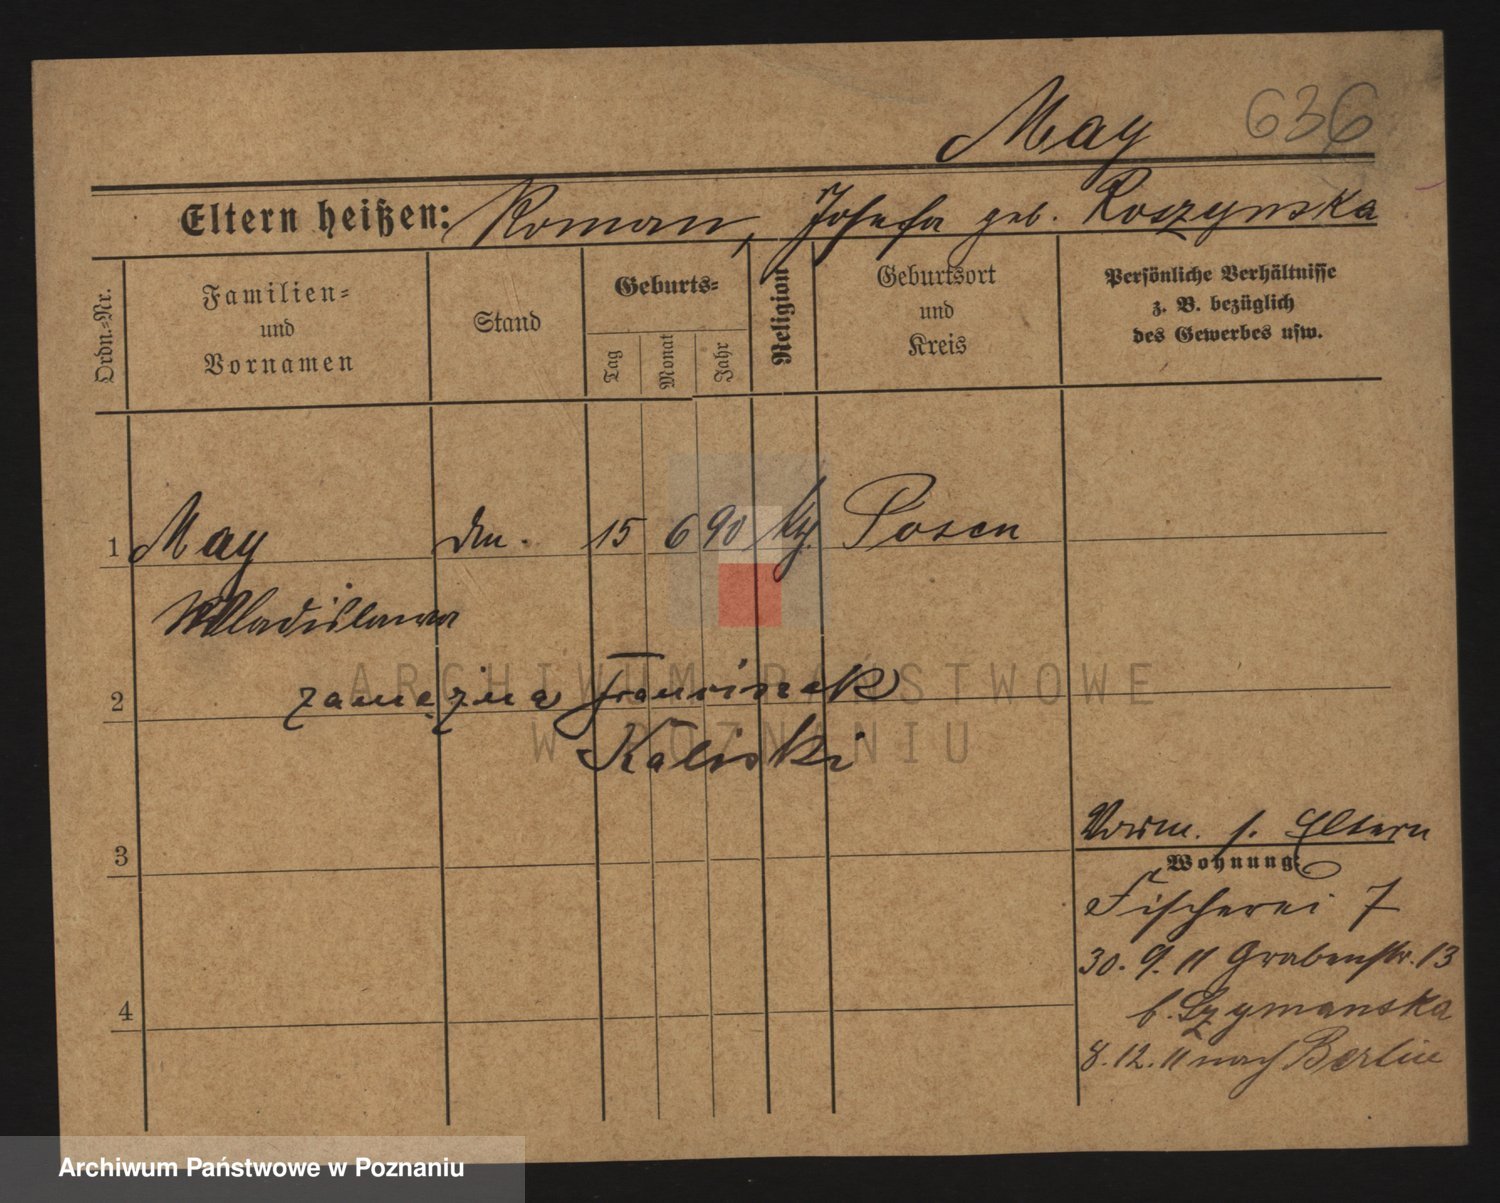 May 636
Eltern heißen: Roman, Josefa geb. Roszynska
Ordn.-Nr.
Familien-
und
Vornamen
Stand
Geburts-
Tag
Monat
Jahr
Religion
Geburtsort
und
Kreis
Persönliche Verhältnisse
z. B. bezüglich
des Gewerbes usw.
1 May 15 6 90 Posen
Wladislawa
2 zamężna Franciszek
Kaliski
3
4
Eltern
Wohnung:
Fischerei 7
30. 9. 11 Grabenstr. 13
b. Szymanska
8. 12. 11 nach Berlin
ARCHIWUM PAŃSTWOWE
W POZNANIU
Archiwum Państwowe w Poznaniu